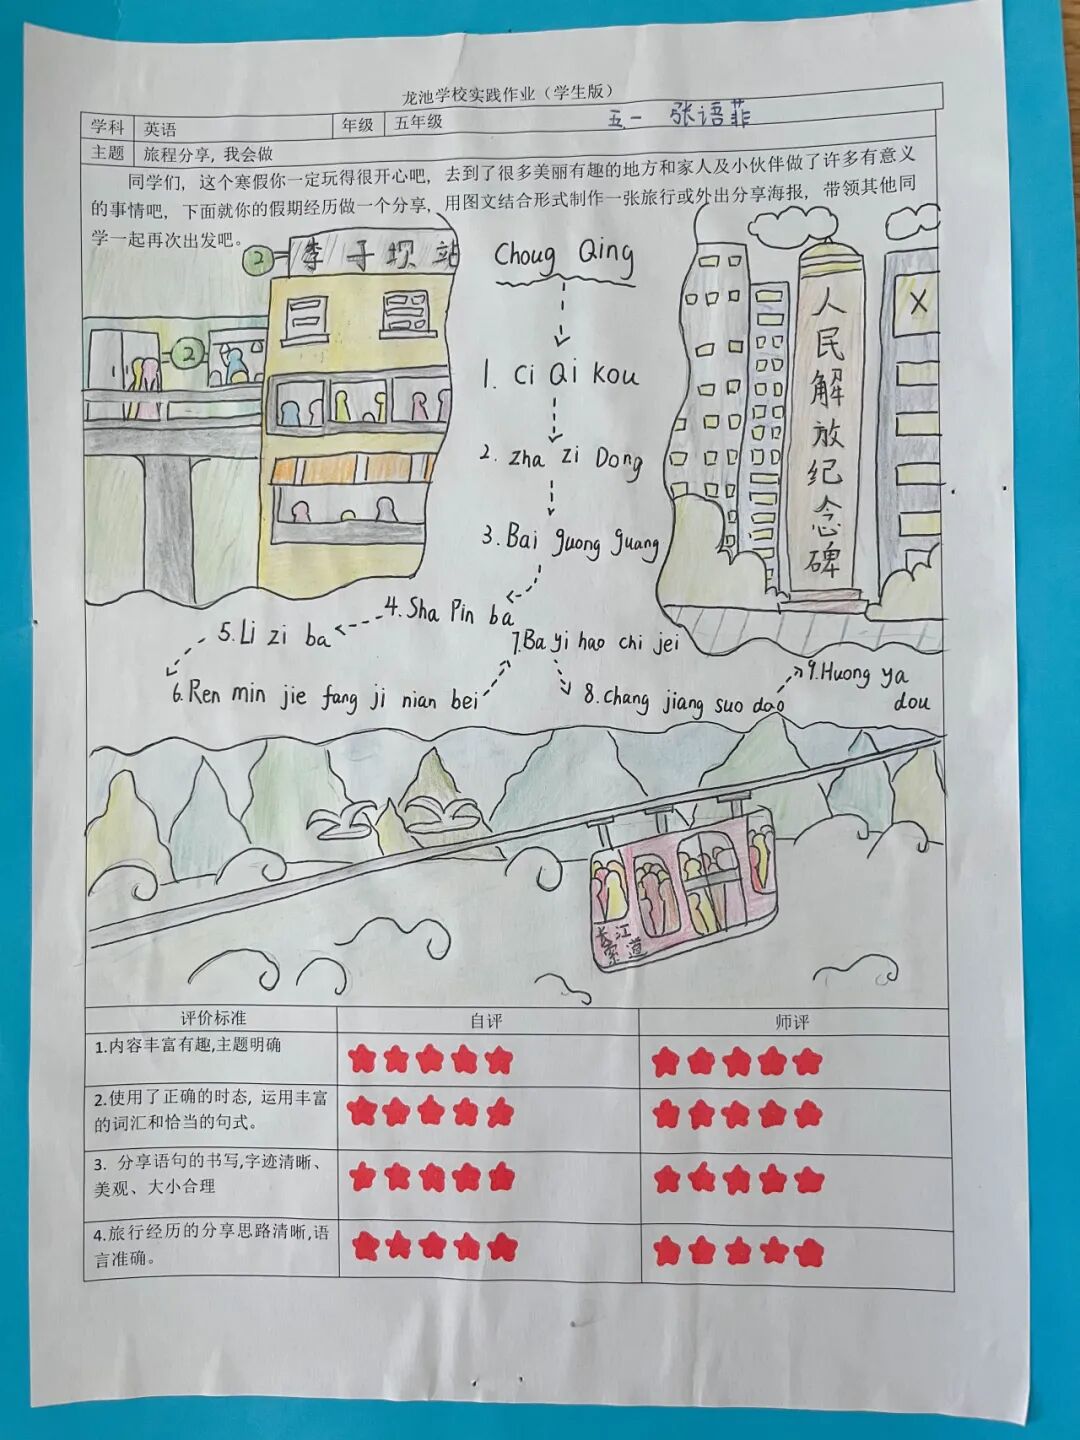 龙池学校实践作业（学生版）
学科 英语 年级 五年级 五一 张语菲
主题 旅程分享, 我会做
同学们, 这个寒假你一定玩得很开心吧, 去到了很多美丽有趣的地方和家人及小伙伴做了许多有意义
的事情吧, 下面就你的假期经历做一个分享, 用图文结合形式制作一张旅行或外出分享海报, 带领其他同
学一起再次出发吧。
2 李子坝站
2
Choug Qing
1. Ci Qi Kou
2. zha zi Dong
3. Bai guong guang
4. Sha Pin ba
5. Li zi ba
6. Ren min jie fang ji nian bei
7. Ba yi hao chi jei
8. chang jiang suo dao
9. Huong ya
dou
人民解放纪念碑
X
长江
索道
评价标准 自评 师评
1.内容丰富有趣,主题明确
2.使用了正确的时态, 运用丰富
的词汇和恰当的句式。
3. 分享语句的书写,字迹清晰、
美观、大小合理
4.旅行经历的分享思路清晰,语
言准确。